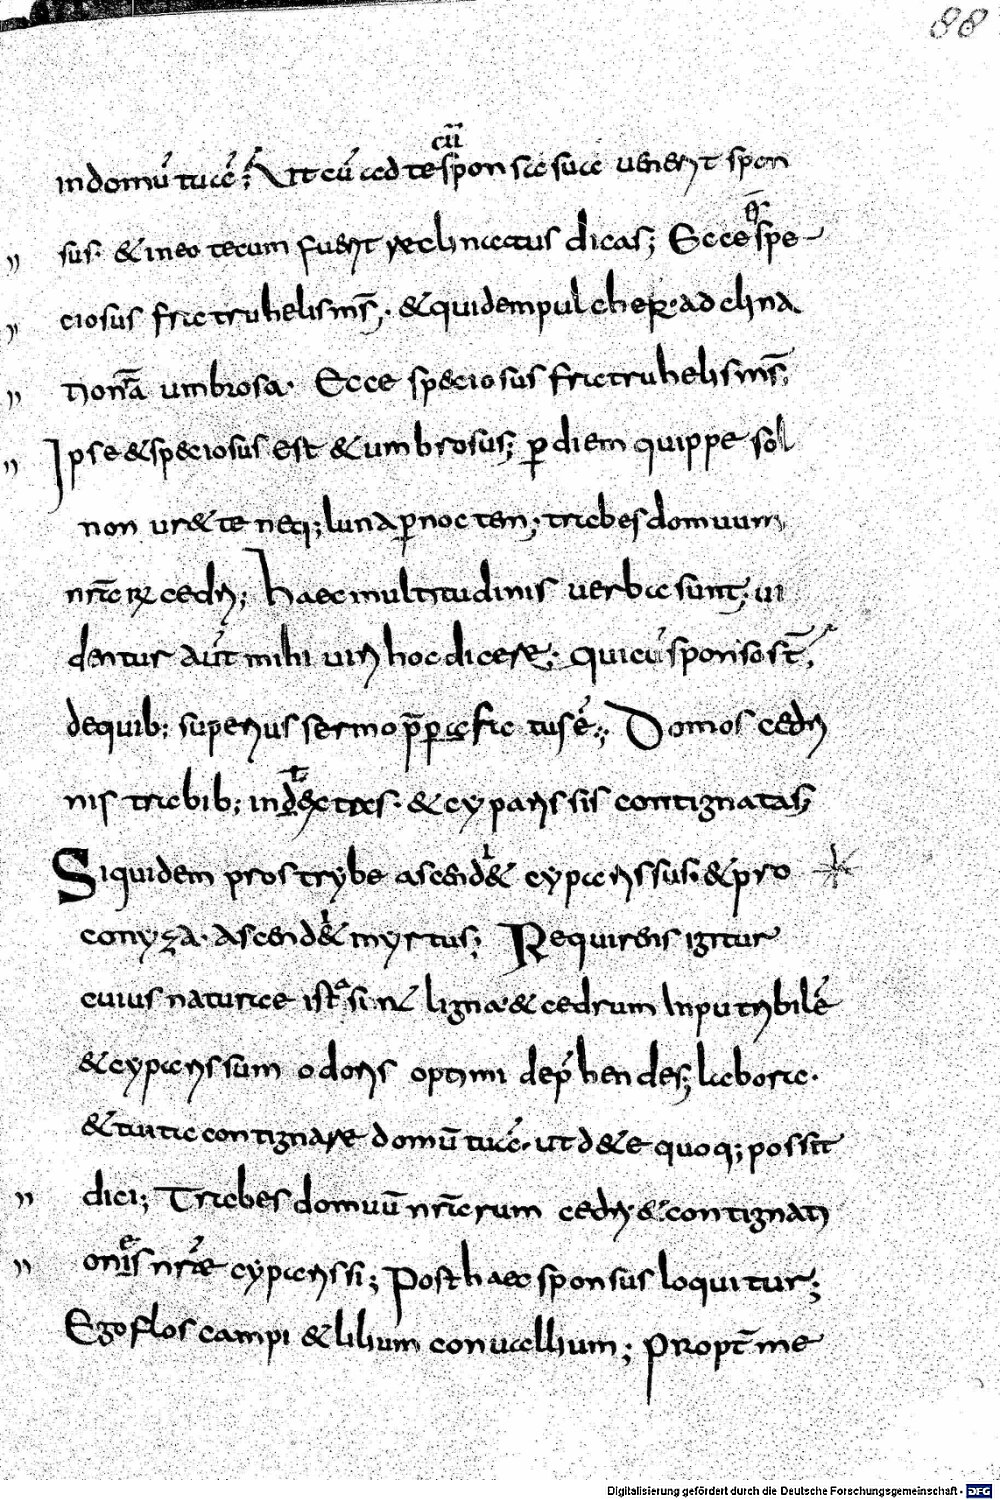 88
cū
in domū tuā; Ut cū ad te spon sa sua uenerit spon
q̄
sus· & in eo tecum fuerit reclinatus dicas; Ecce spe
ciosus fratruhelis ms̄· & quidem pulcher· adclina
tio nr̄a umbrosa· Ecce speciosus fratruhelis ms̄;
Ipse & speciosus est & umbrosus; ꝑ diem quippe sol
non ur& te neq; luna ꝑ noctem; trabes domuum
nr̄arꝝ cedri; Haec multitudinis uerba sunt; ui
dentur aūt mihi uiri hoc dicere; qui cū sponso st̄;
de quib; superius sermo p̄ꝑa fac tus ē; Domos cedri
nis trabib; & cyparissis contignatas;
Siquidem pro strybe ascend& cyparissus· & pro
conyza· ascend& myrtus; Requirens igitur
cuius naturae ista sin̄ ligna· & cedrum inputribilē
& cyparissum odoris optimi dep̄hendes; labora·
& tu ita contignare domū tuā· ut d& e quoq; possit
dici; Trabes domuū nr̄arum cedri & contignati
e
onis nr̄ae cyparissi; Post haec sponsus loquitur;
Ego flos campi & lilium conuallium; Propt̄ me
Digitalisierung gefördert durch die Deutsche Forschungsgemeinschaft - DFG